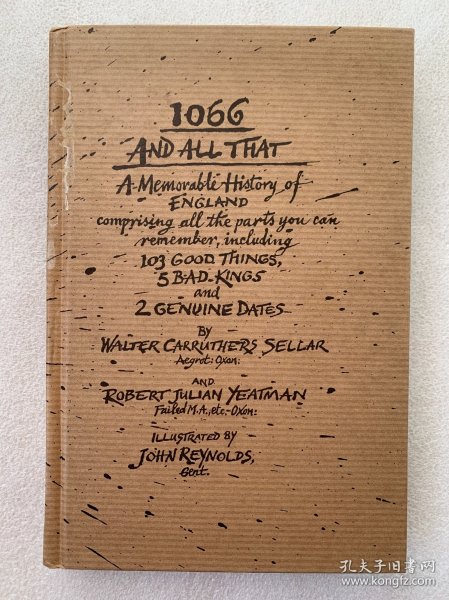 1066
AND ALL THAT
A Memorable History of
ENGLAND
comprising all the parts you can
remember, including
103 GOOD THINGS,
5 BAD KINGS
and
2 GENUINE DATES
BY
WALTER CARRUTHERS SELLAR
Aegrot: Oxon:
AND
ROBERT JULIAN YEATMAN
Failed M.A., etc. Oxon:
ILLUSTRATED BY
JOHN REYNOLDS,
Gent.
孔夫子旧书网
www.kongfz.com